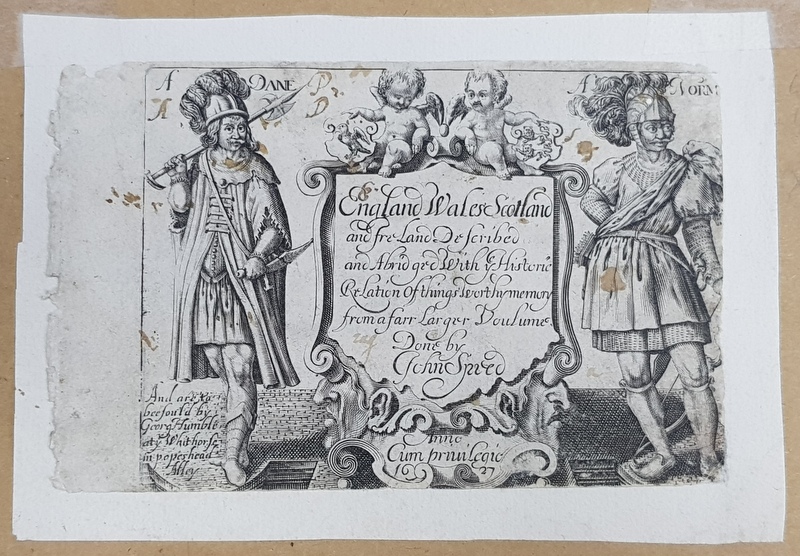 A DANE
A NORM
England Wales Scotland
and Ireland Described
and Abridged With ye Historic
Relation Of things worthy memory
from a farr Larger Voulume.
Done by
John Speed
And are to
bee sould by
Georg Humble
at ye Whithorse
in popeshead
Alley
Anno
Cum privilegio
1627